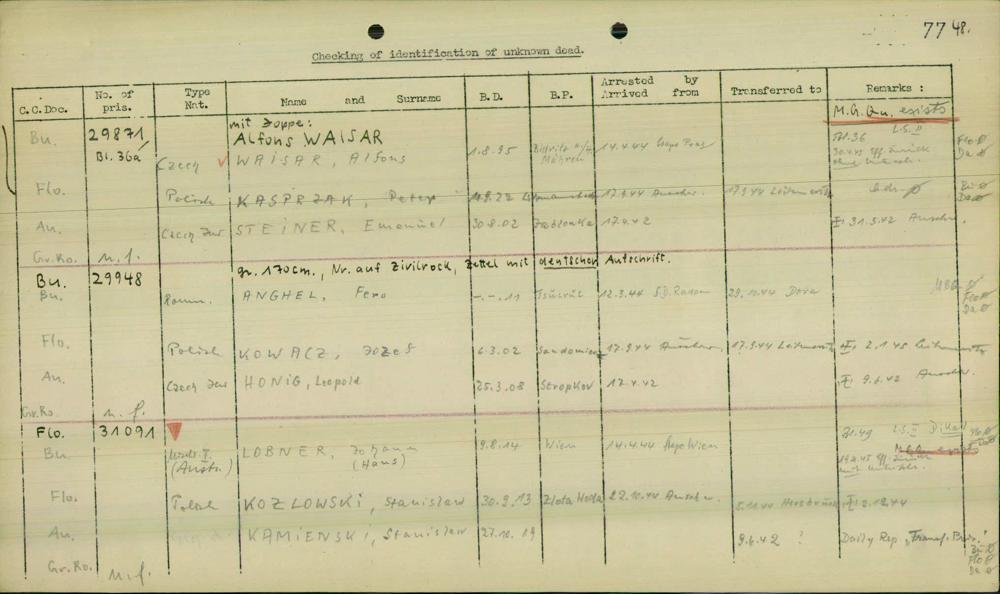 77 48.
Checking of identification of unknown dead.
C.C.Doc. No. of pris. Type Nat. Name and Surname B.D. B.P. Arrested by Arrived from Transferred to Remarks :
M.G.Qu. exists
mit Joppe:
Bu. 29871 Alfons WAISAR Bl.36 L.S. II
Bl. 36a Czech WAISAR, Alfons 1.8.95 Mähren 14.4.44 Stapo Prag Flo Ø Da Ø
Flo. Polish KASPRZAK, Peter 17.9.44 Auschw. 17.9.44 Leitmeritz Bu Ø Da Ø
Au. Czech Jew STEINER, Emanuel 30.8.02 Jablonka 17.4.42 31.5.42 Auschw.
Gr.Ro. n.f.
gr. 170cm., Nr. auf Zivilrock, Zettel mit deutschen Aufschrift.
Bu. 29948
Bu. Roum. ANGHEL, Fero -.-.11 12.3.44 29.10.44 Dora Flo Ø Da Ø
Flo. Polish KOWACZ, Jozef 6.3.02 Sandomierz 17.9.44 Auschw. 17.9.44 Leitmeritz 2.1.45 Leitmeritz
Au. Czech Jew HONIG, Leopold 25.3.08 Stropkov 17.4.42 9.6.42 Auschw.
Gr.Ro. n.f.
Flo. 31091
Bu. (Austr.) LOBNER, Johann (Hans) 9.8.14 Wien 14.4.44 Stapo Wien Bl.49 L.S. II
M.G.Qu. exists
Flo. Polish KOZLOWSKI, Stanislaw 30.9.13 Zlota 22.10.44 Auschw. 5.11.44 Hersbruck 2.12.44
Au. KAMIENSKI, Stanislaw 27.10.19 9.6.42 ? Daily Rep. "Transf. Bu."
Bu Ø Flo Ø Da Ø
Gr.Ro. n.f.